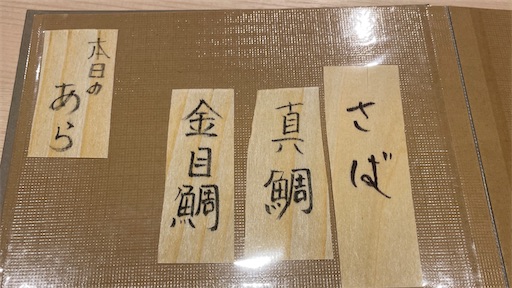 さば
真鯛
金目鯛
本日の
あら